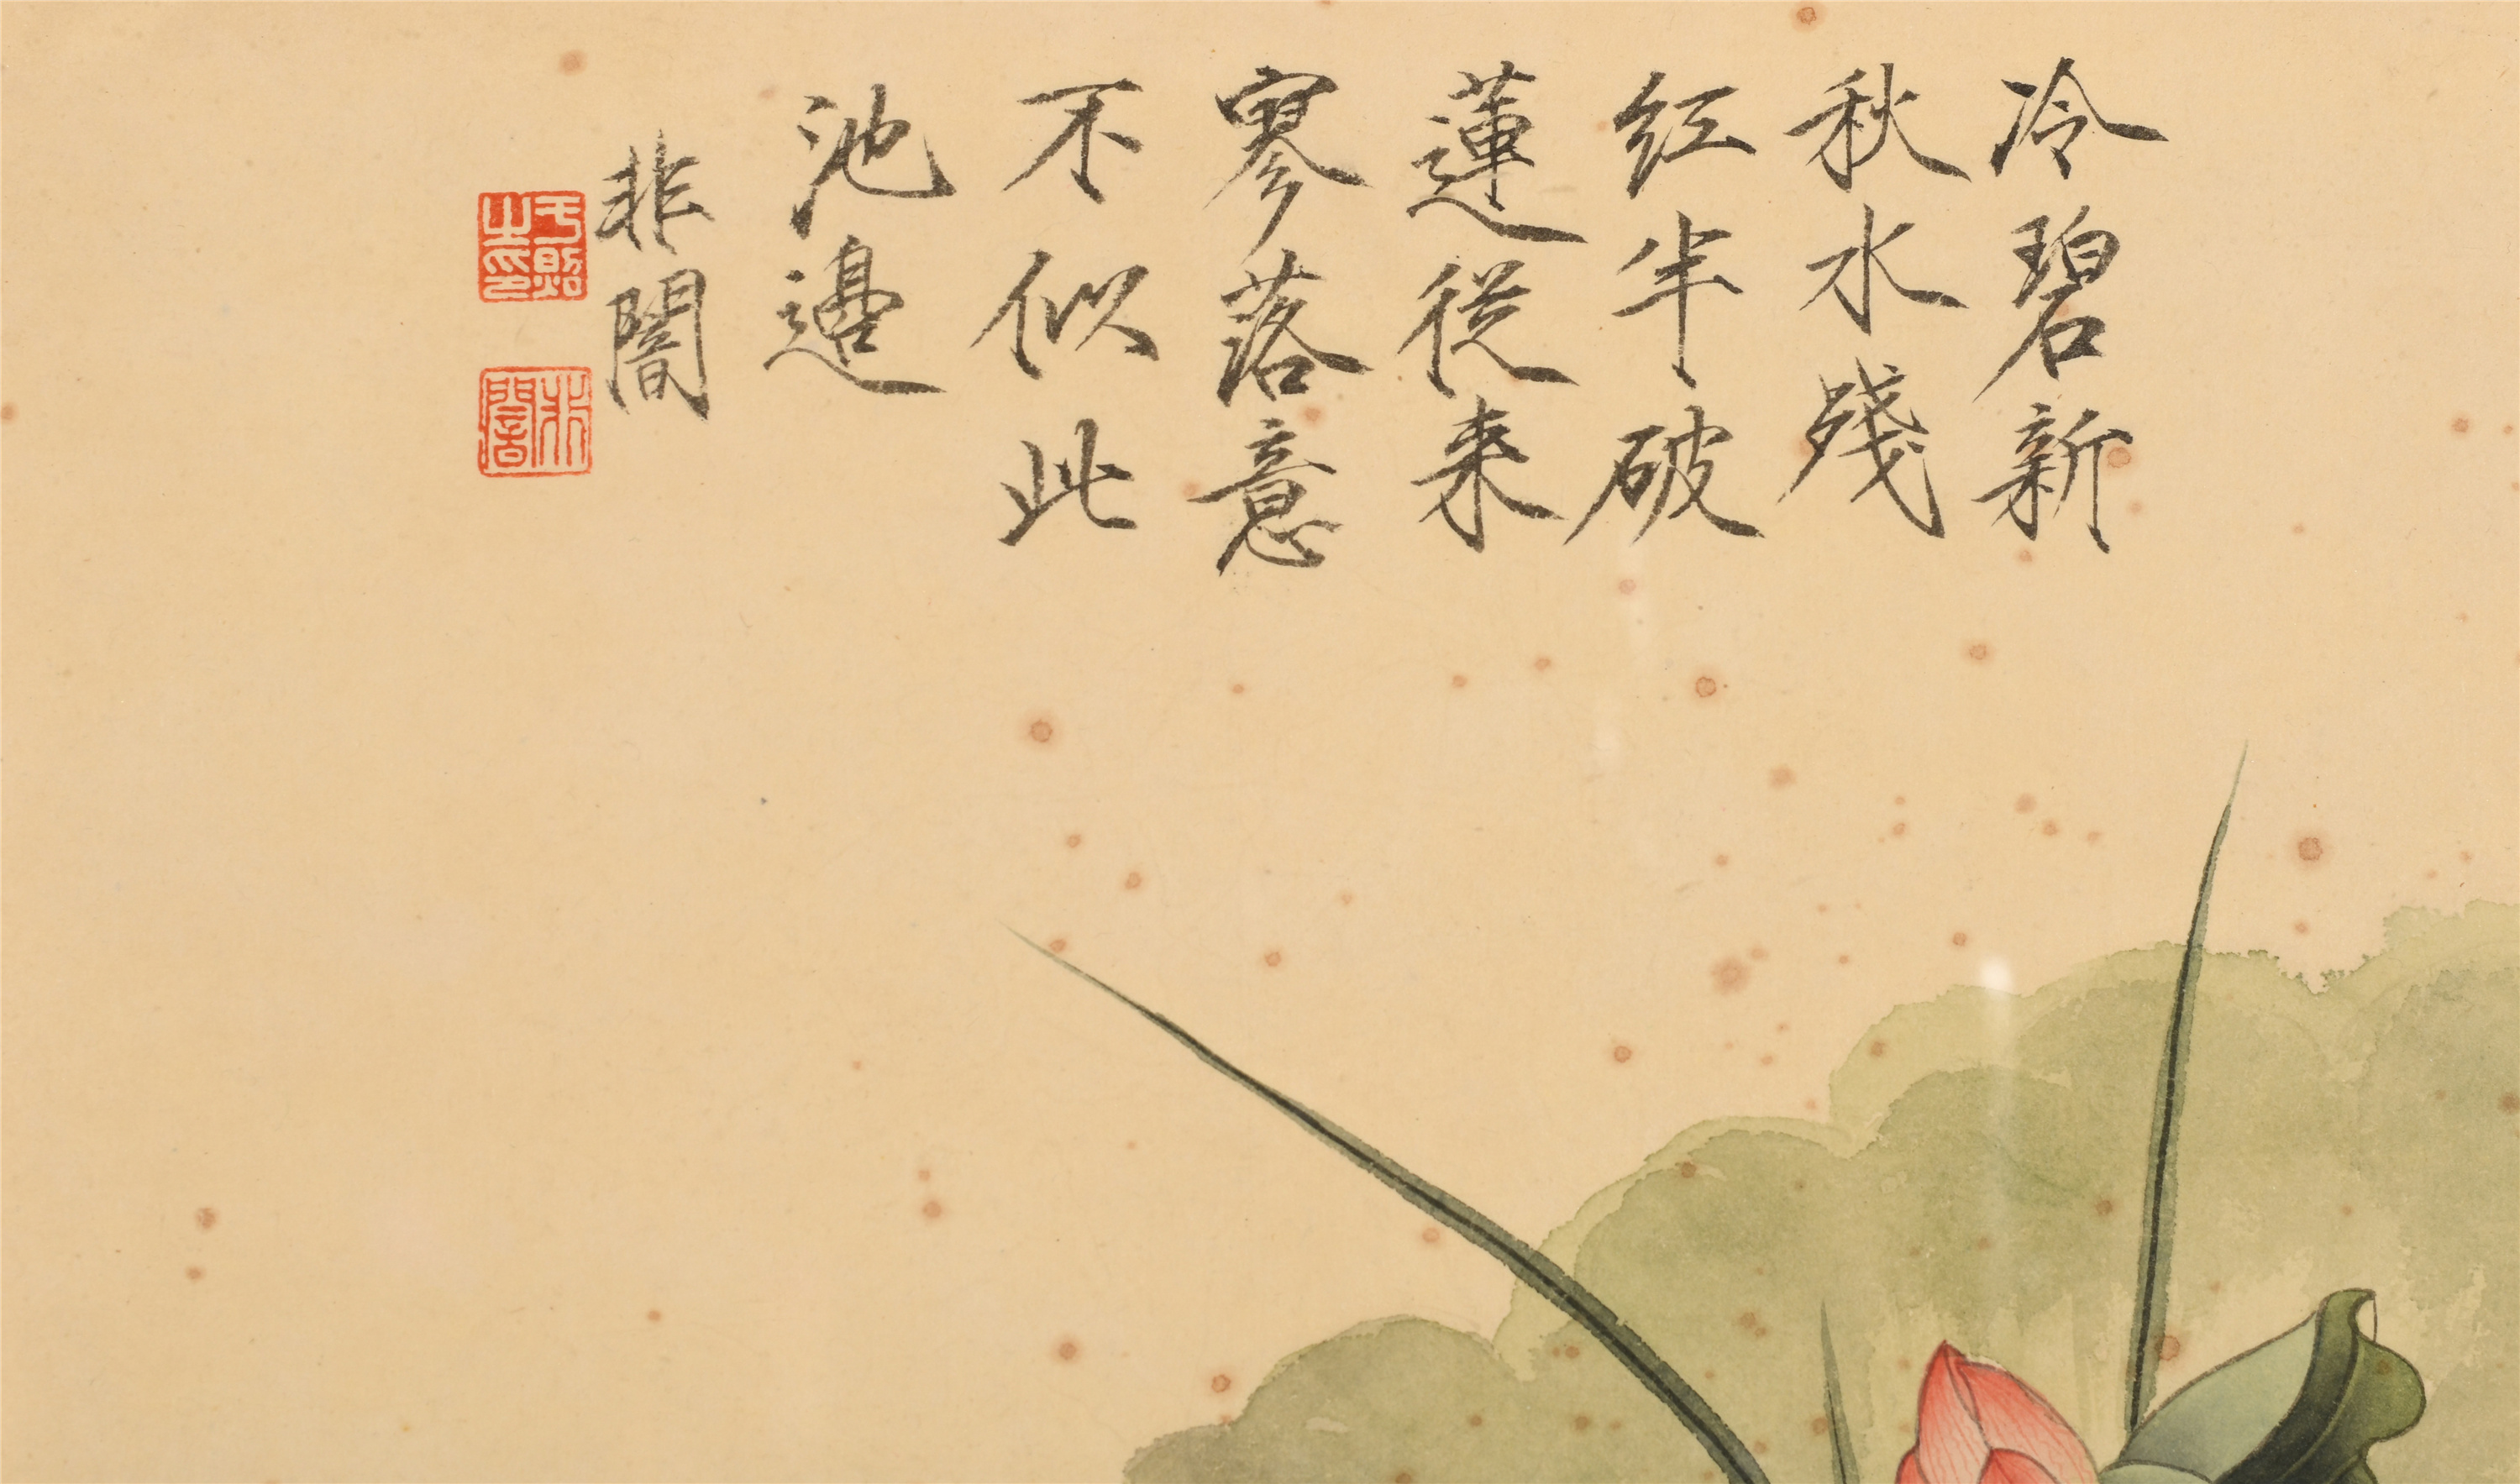 冷碧新
秋水殘
红半破
蓮從来
寥落意
不似此
池邊
非闇
于照之印
非闇